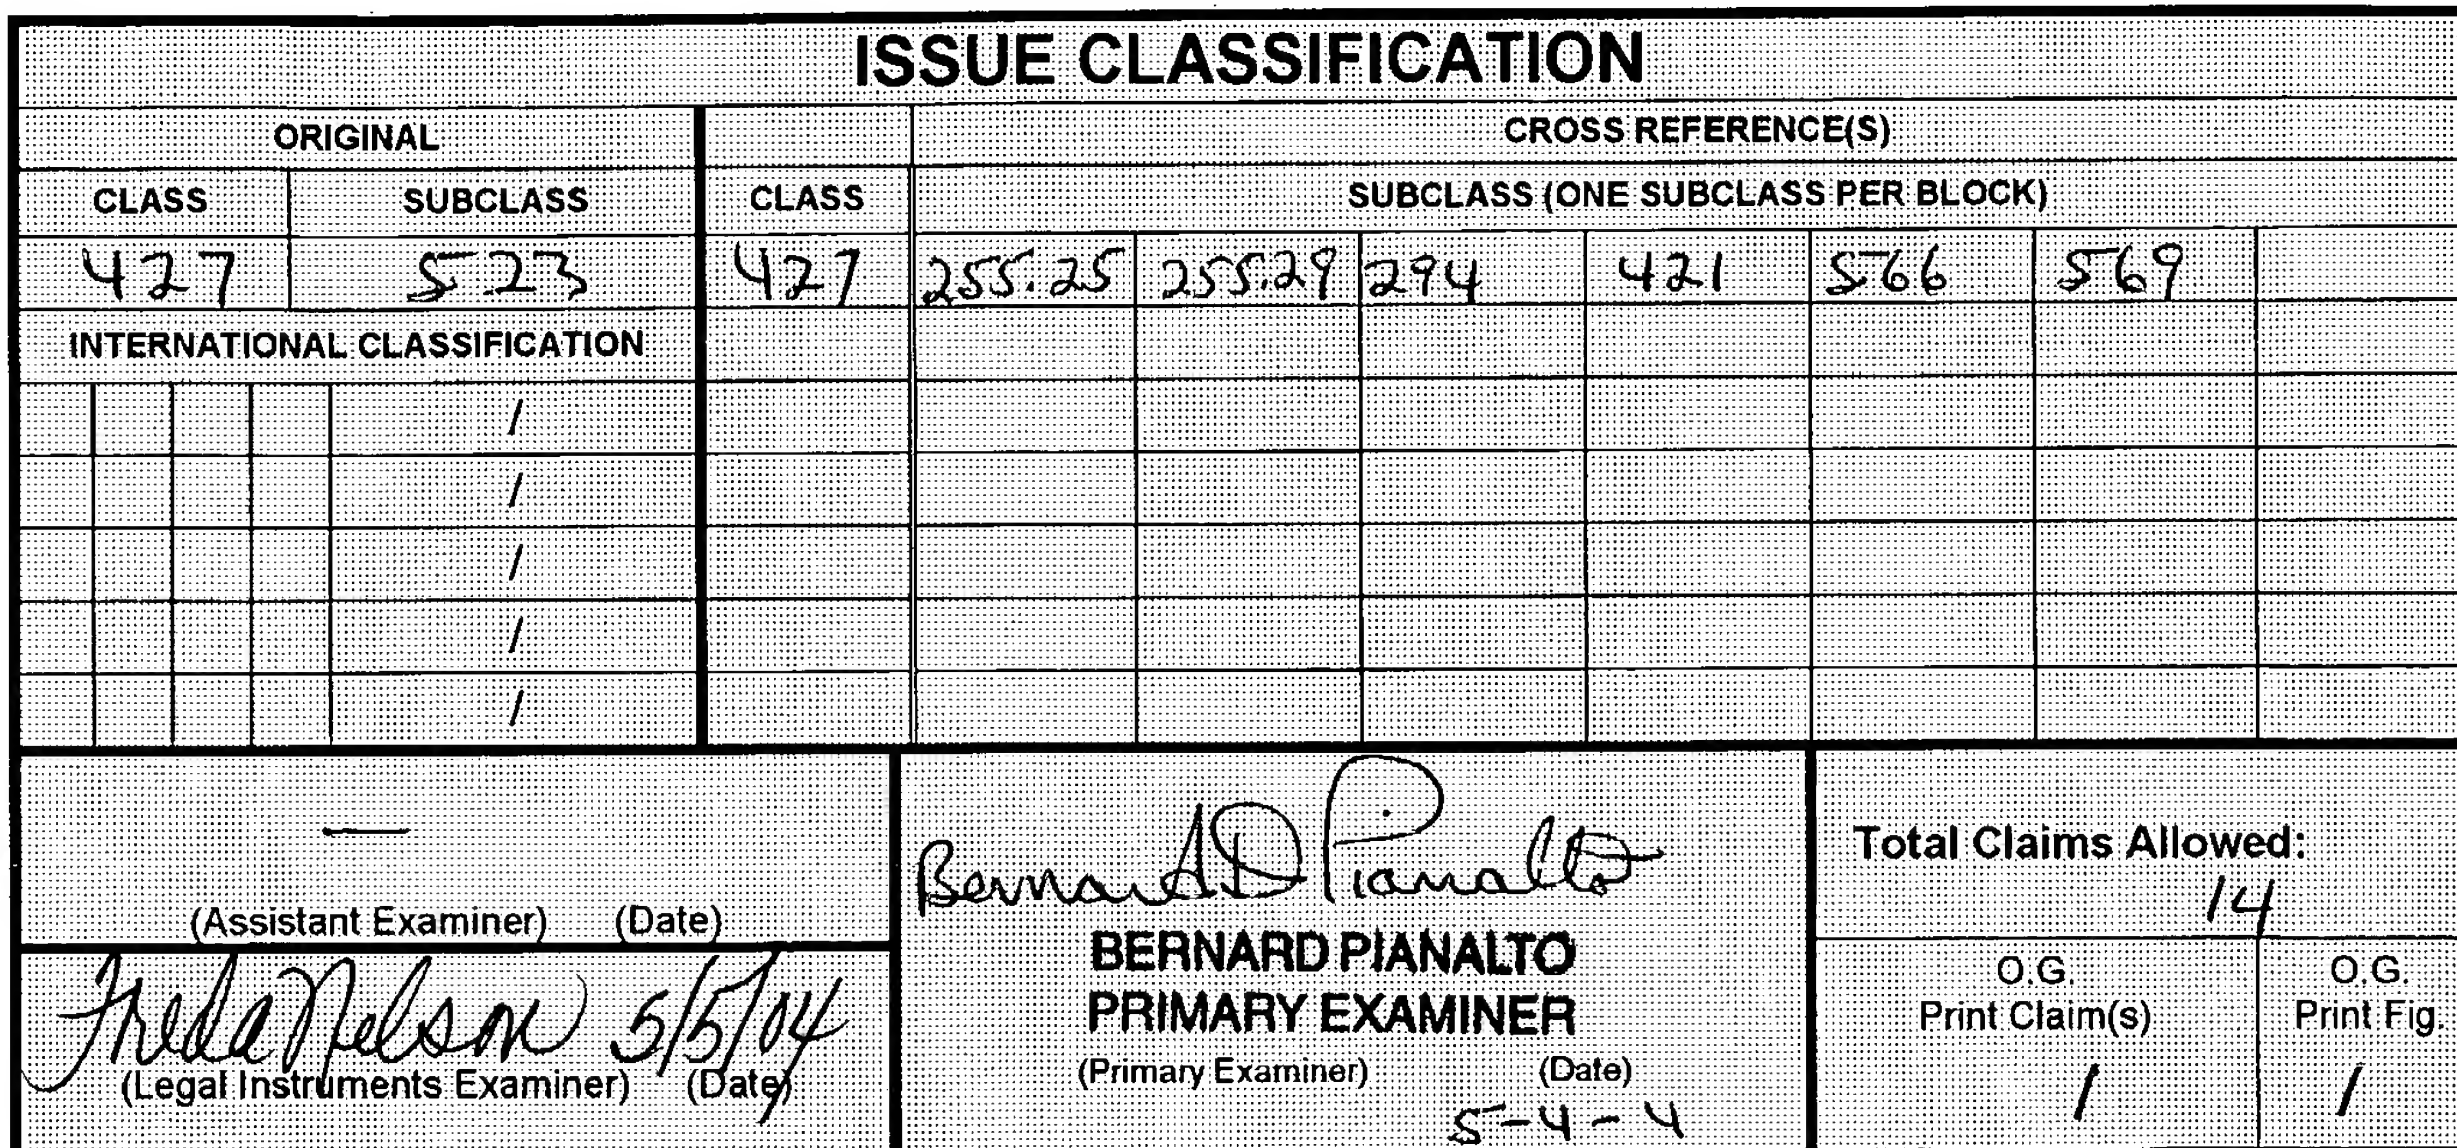 ISSUE CLASSIFICATION
ORIGINAL
CROSS REFERENCE(S)
CLASS SUBCLASS CLASS SUBCLASS (ONE SUBCLASS PER BLOCK)
427 523 427 255.25 255.29 294 421 566 569
INTERNATIONAL CLASSIFICATION
/
/
/
/
/
—
(Assistant Examiner) (Date)
Freda Nelson 5/5/04
(Legal Instruments Examiner) (Date)
Bernard D Pianalto
BERNARD PIANALTO
PRIMARY EXAMINER
(Primary Examiner) (Date)
5-4-4
Total Claims Allowed:
14
O.G.
Print Claim(s)
1
O.G.
Print Fig.
1